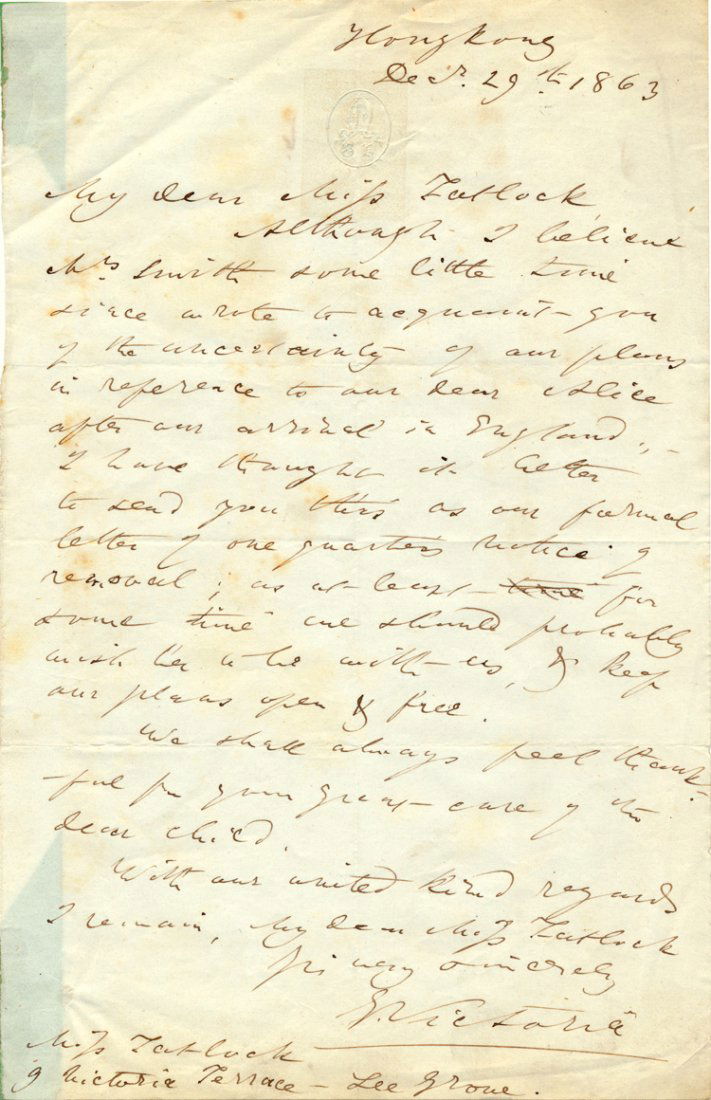 Hongkong
Decr. 29th 1863
My dear Miss Tatlock
Although I believe
Mrs Smith some little time
since wrote to acquaint you
of the uncertainty of our plans
in reference to our dear Alice
after our arrival in England,
I have thought it better
to send you this as our formal
letter of one quarter's notice of
removal; as at least time for
some time we should probably
wish her to be with us, & keep
our plans open & free.
We shall always feel thank-
-ful for your great care of the
dear child.
With our united kind regards
I remain, My dear Miss Tatlock
very sincerely
G. Victoria
Miss Tatlock
9 Victoria Terrace - Lee Grove.